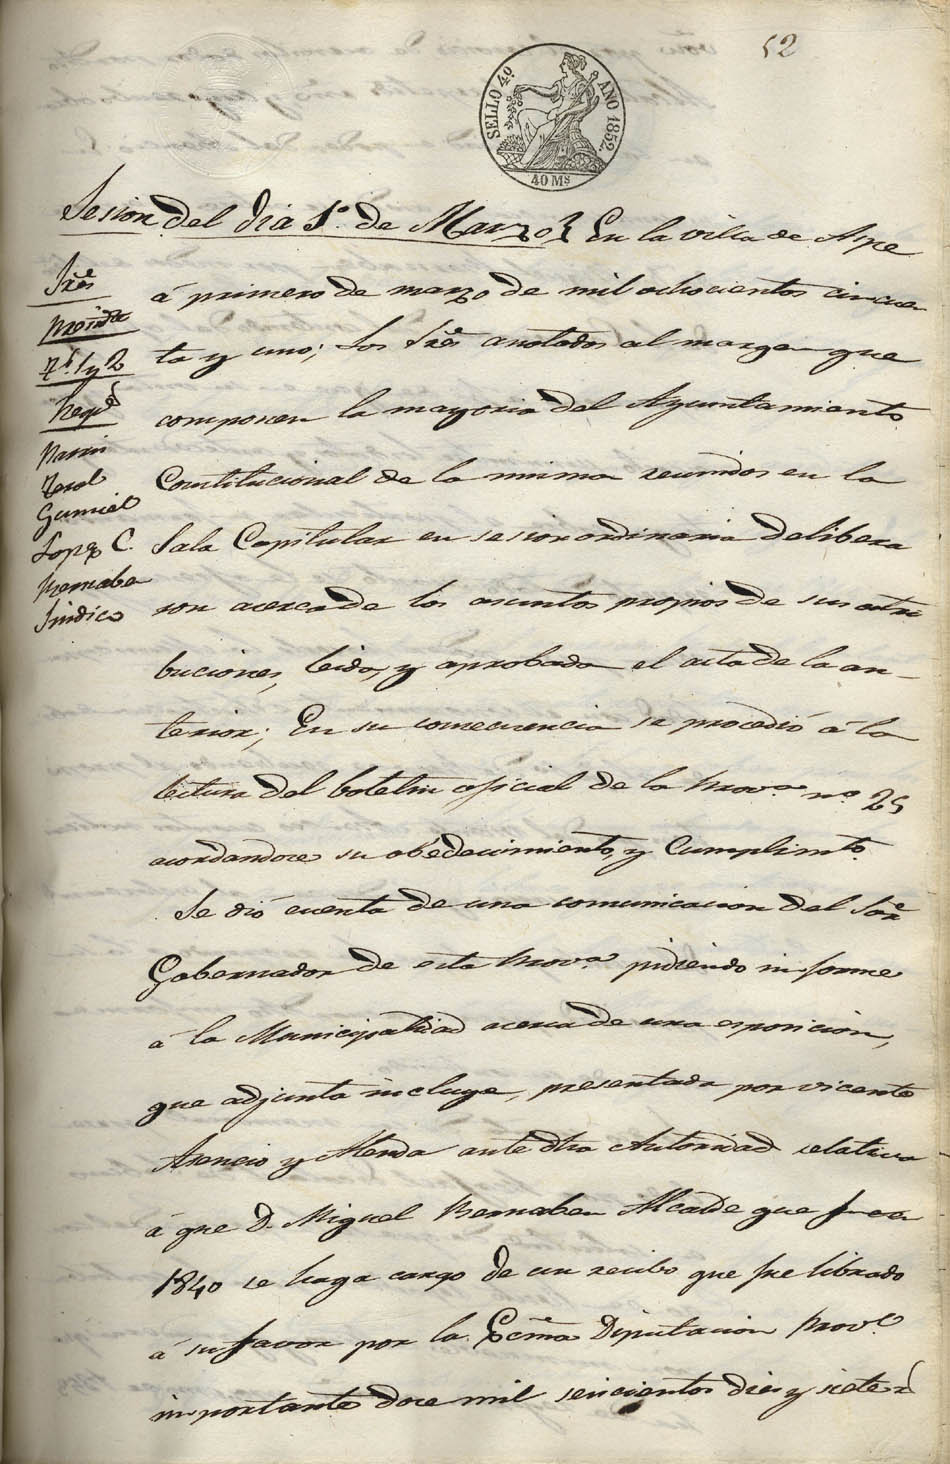 52
SELLO 4º AÑO 1852.
40 Ms
Sesion del dia 1º. de Marzo } En la villa de Aspe
á primero de marzo de mil ochocientos cincuen
ta y uno; los Sres anotados al margen que
componen la mayoria del Ayuntamiento
Constitucional de la misma reunidos en la
Sala Capitular en sesion ordinaria delibera
ron acerca de los asuntos propios de sus atri
buciones, leida, y aprobada el acta de la an-
terior; En su consecuencia se procedió á la
lectura del boletin oficial de la Prova nº 25
acordandose su obedecimiento, y Cumplimto.
Se dió cuenta de una comunicacion del Sor
Gobernador de esta Prova pidiendo informe
á la Municipalidad acerca de una esposicion,
que adjunta incluye, presentada por vicente
Asencio y Merida ante dha Autoridad relativa
á que D. Miguel Bernabeu Alcalde que fue en
1840 se haga cargo de un recibo que fue librado
á su favor por la Ecma Diputacion Provl
importante doce mil seiscientos diez y siete rs
Sres
Presidte
Ts. 1 y 2
Regs
Pastor
Terol
Gumiel
Lopez C.
Bernabe
Sindico